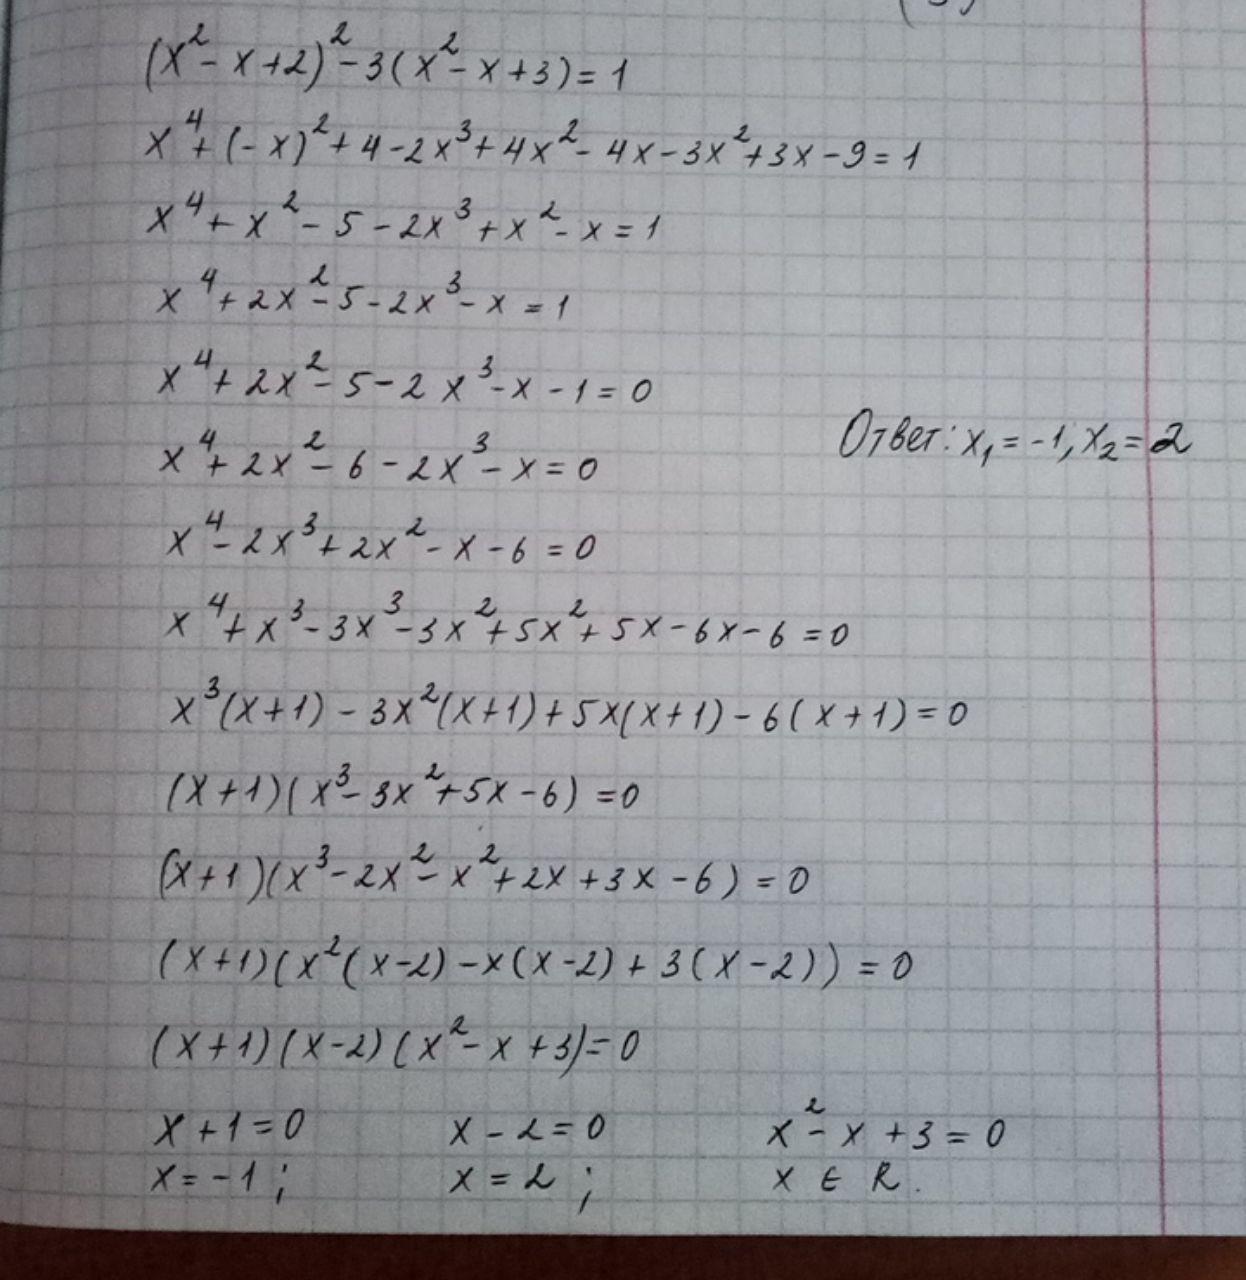 (x² - x + 2)² - 3(x² - x + 3) = 1
x⁴ + (-x)² + 4 - 2x³ + 4x² - 4x - 3x² + 3x - 9 = 1
x⁴ + x² - 5 - 2x³ + x² - x = 1
x⁴ + 2x² - 5 - 2x³ - x = 1
x⁴ + 2x² - 5 - 2x³ - x - 1 = 0
x⁴ + 2x² - 6 - 2x³ - x = 0
Ответ: x₁ = -1, x₂ = 2
x⁴ - 2x³ + 2x² - x - 6 = 0
x⁴ + x³ - 3x³ - 3x² + 5x² + 5x - 6x - 6 = 0
x³(x+1) - 3x²(x+1) + 5x(x+1) - 6(x+1) = 0
(x+1)(x³ - 3x² + 5x - 6) = 0
(x+1)(x³ - 2x² - x² + 2x + 3x - 6) = 0
(x+1)(x²(x-2) - x(x-2) + 3(x-2)) = 0
(x+1)(x-2)(x² - x + 3) = 0
x + 1 = 0 x - 2 = 0 x² - x + 3 = 0
x = -1; x = 2; x ∈ R.